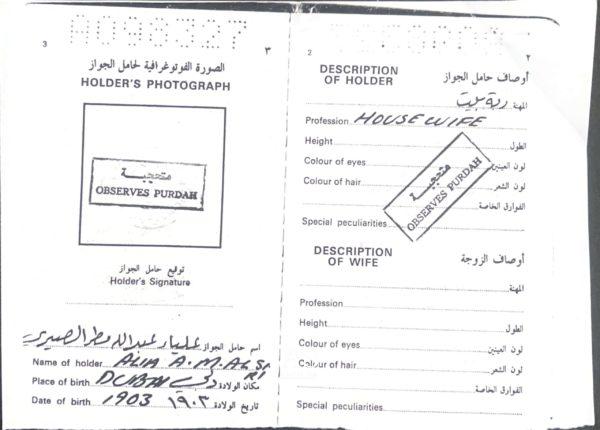 A098327
3
٣
الصورة الفوتوغرافية لحامل الجواز
HOLDER'S PHOTOGRAPH
متحجبة
OBSERVES PURDAH
توقيع حامل الجواز
Holder's Signature
اسم حامل الجواز علياء عبدالله مطر الصيري
Name of holder ALIA A. M. AL S
RI
Place of birth DUBAI دبي مكان الولادة
Date of birth 1903 ١٩٠٣ تاريخ الولادة
2
٢
DESCRIPTION OF HOLDER
أوصاف حامل الجواز
المهنة ربة بيت
Profession HOUSEWIFE
Height الطول
Colour of eyes لون العينين
Colour of hair لون الشعر
الفوارق الخاصة
Special peculiarities
متحجبة
OBSERVES PURDAH
DESCRIPTION OF WIFE
أوصاف الزوجة
المهنة
Profession
Height الطول
Colour of eyes لون العينين
Colour of hair لون الشعر
الفوارق الخاصة
Special peculiarities